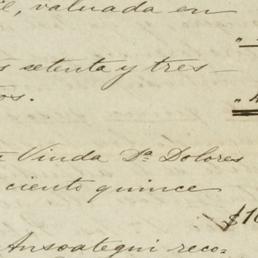 e, valuada en
s setenta y tres
tos.
Viuda Da. Dolores
ciento quince
$1
Ansoategui reco=